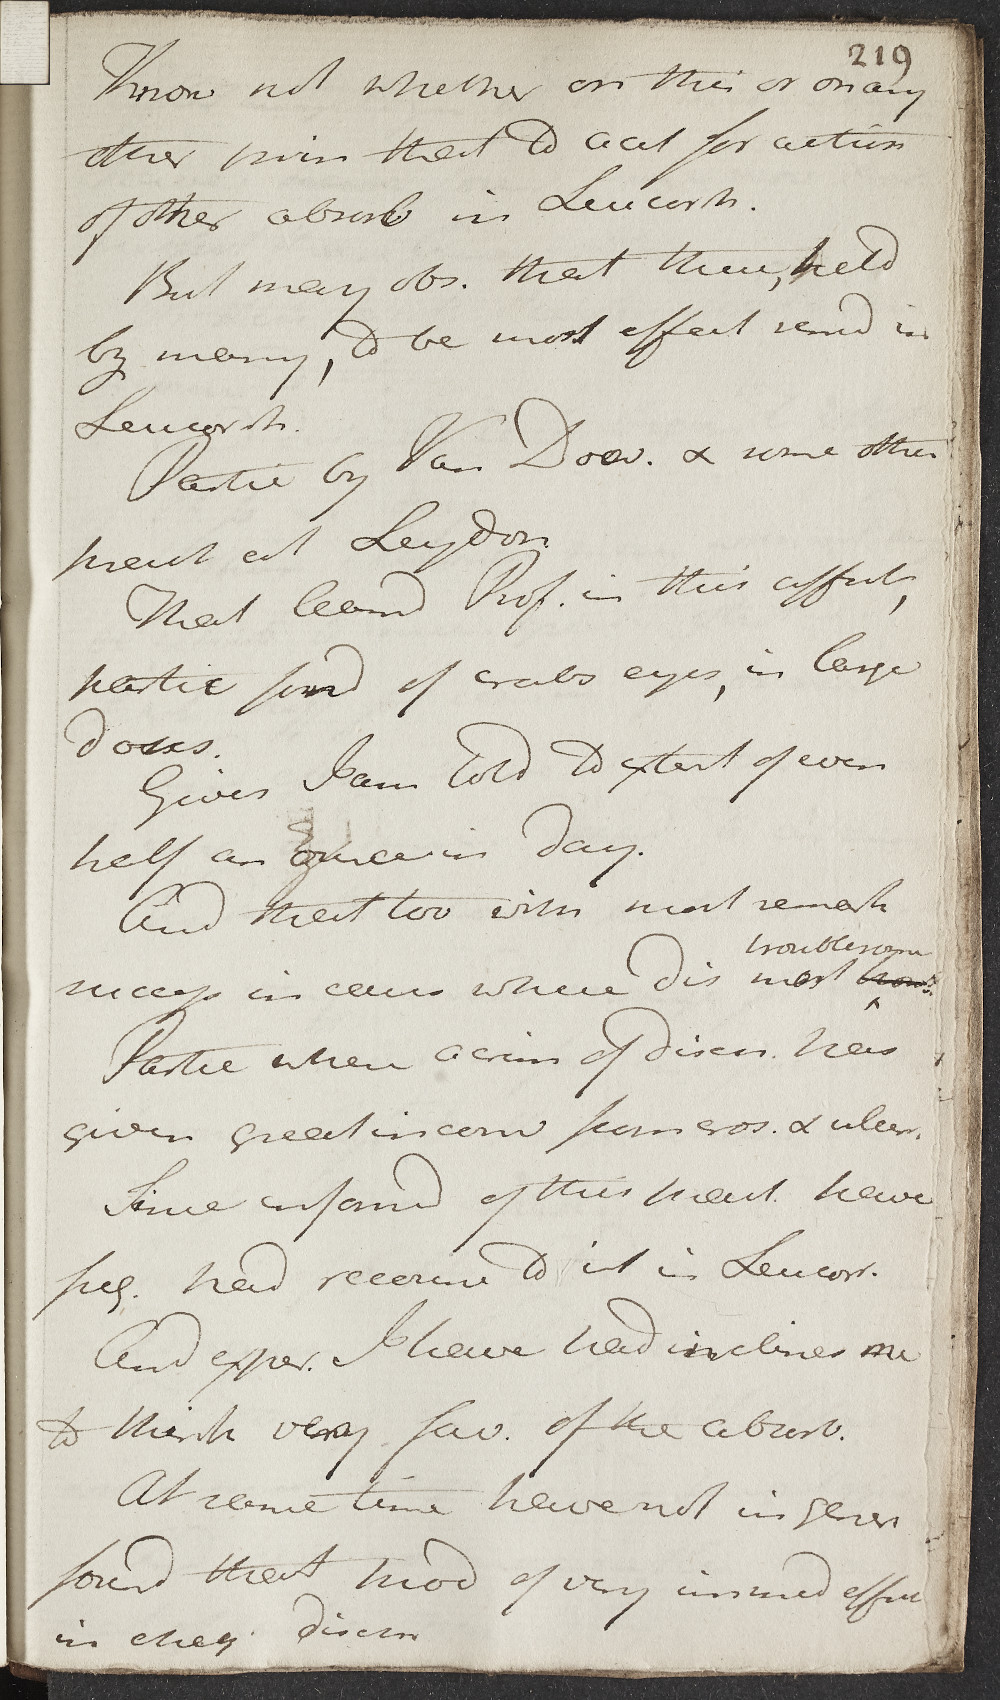 219
Know not whether on this or on any
other prin that to acct for action
of other absorb in Leucorrh.
But may obs. that them, held
by many, to be most effect remd in
Leucorrh.
Partic by Van Doev. & some other
pract at Leydon
That learnd Prof. in this affect,
partic fond of crabs eyes, in large
doses.
Gives I am told to extent of even
half an ounce in day.
And that too with most remark
troublesome
success in cases where dis most
Partic when acrim of disch. has
given great inconv from eros. & ulcer.
Since informd of this pract. have
freq. had recourse to it in Leucorr.
And exper. I have had inclines me
to think very fav. of the absorb.
At same time have not in gener
found that prod of very immed effect
in check disch